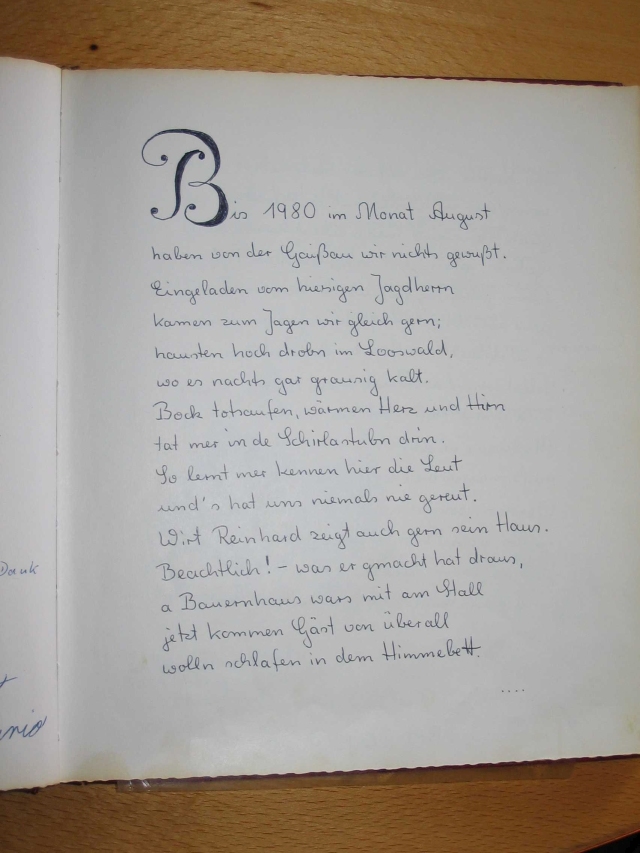 Bis 1980 im Monat August
haben von der Gaißau wir nichts gewußt.
Eingeladen vom hiesigen Jagdherrn
kamen zum Jagen wir gleich gern;
hausten hoch drobn im Looswald,
wo es nachts gar grausig kalt.
Bock totsaufen, wärmen Herz und Hirn
tat mer in de Schirlastubn drin.
So lernt mer kennen hier die Leut
und's hat uns niemals nie gereut.
Wirt Reinhard zeigt auch gern sein Haus.
Beachtlich! - was er gmacht hat draus,
a Bauernhaus wars mit am Stall
jetzt kommen Gäst von überall
wolln schlafen in dem Himmebett.
....
Dank